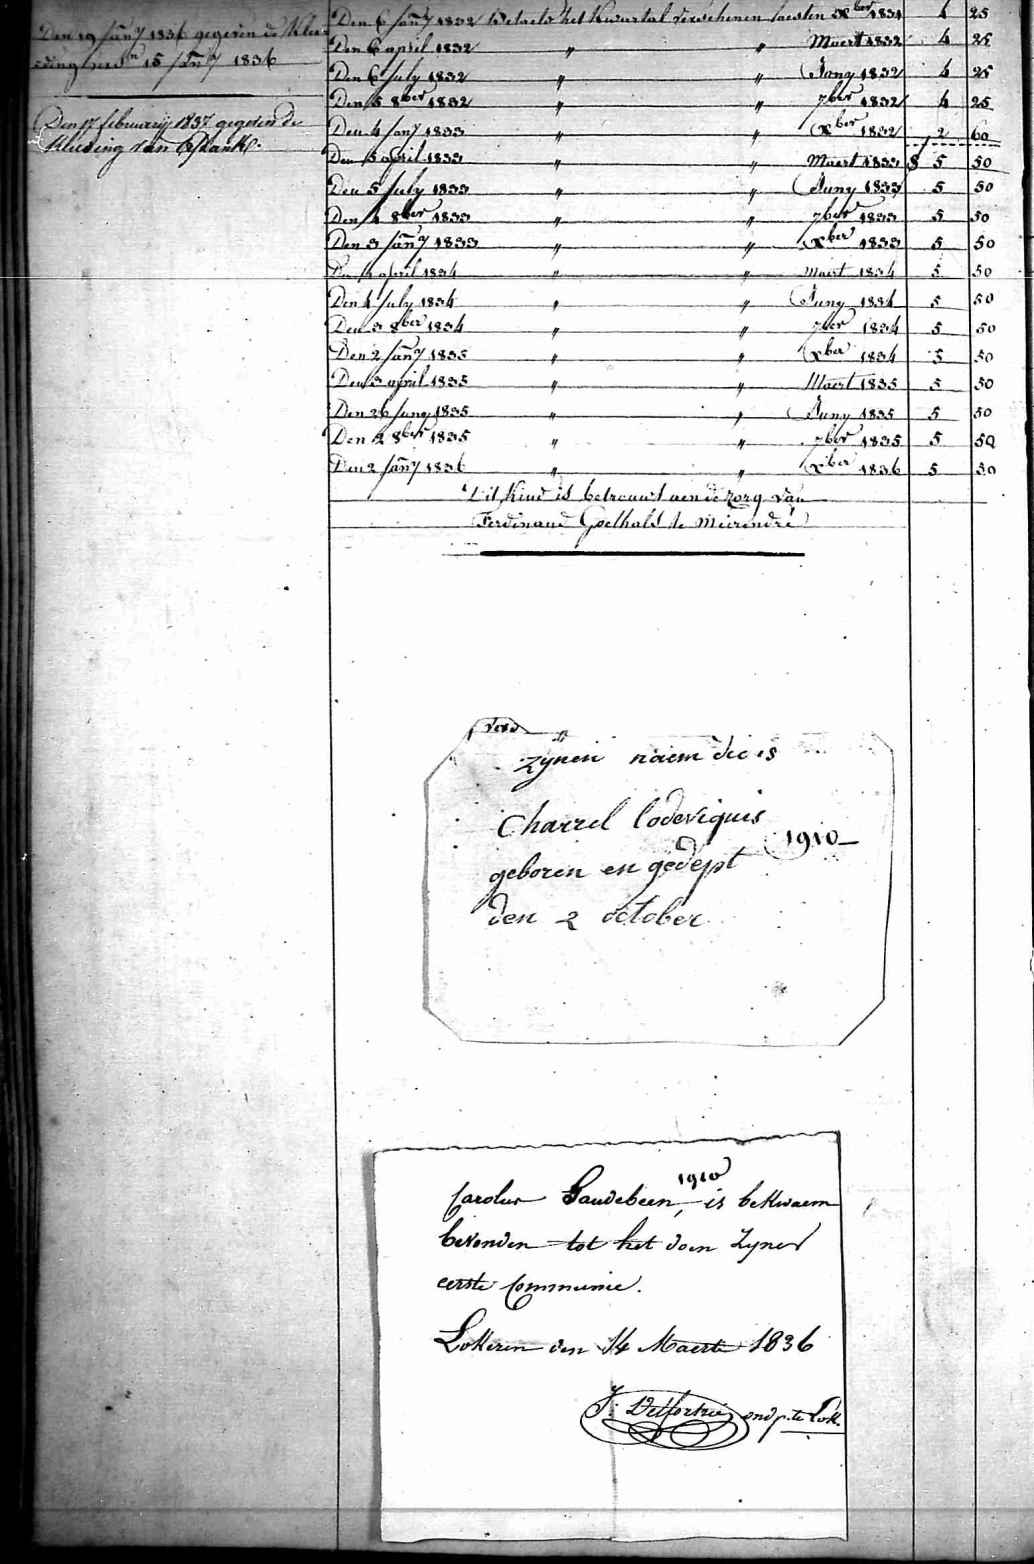 Den 19 Jan̄y 1836 gegeven de Klee-
ding 15 Jan̄y 1836
Den 17 february 1837 gegeven de
Kleeding van
Den 6 Jan̄y 1832 betaelt het Kwartal verschenen laesten Xber 1831 4 25
Den 6 april 1832 " " Maert 1832 4 25
Den 6 July 1832 " " Juny 1832 4 25
Den 5 8ber 1832 " " 7ber 1832 4 25
Den 4 Jany 1833 " " Xber 1832 2 60
Den 5 april 1833 " " Maert 1833 5 50
Den 5 July 1833 " " Juny 1833 5 50
Den 4 8ber 1833 " " 7ber 1833 5 50
Den 3 Jan̄y 1833 " " Xber 1833 5 50
Den 4 april 1834 " " Maert 1834 5 50
Den 4 July 1834 " " Juny 1834 5 50
Den 3 8ber 1834 " " 7ber 1834 5 50
Den 2 Jan̄y 1835 " " Xber 1834 5 50
Den 3 april 1835 " " Maert 1835 5 50
Den 26 Juny 1835 " " Juny 1835 5 50
Den 2 8ber 1835 " " 7ber 1835 5 50
Den 2 Jan̄y 1836 " " Xber 1836 5 50
Dit Kind is betrouwt aen de zorg van
Ferdinand Goethals te Meirendré
zynen naem die is
Charrel lodeviquis
1910
geboren en gedept
den 2 october
1910
Carolus Gaudebeen, is bekwaem
bevonden tot het doen zyner
eerste Communie.
Lokeren den 14 Maerte 1836
J. Delfortrie ond p. te Lok.